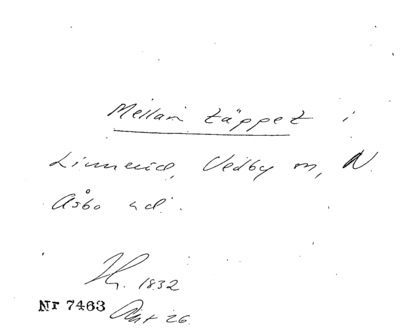 Mellan täppet i
Linnerid, Vedby sn, N.
Åsbo hd.
1832
Nr 7463 Akt 26.